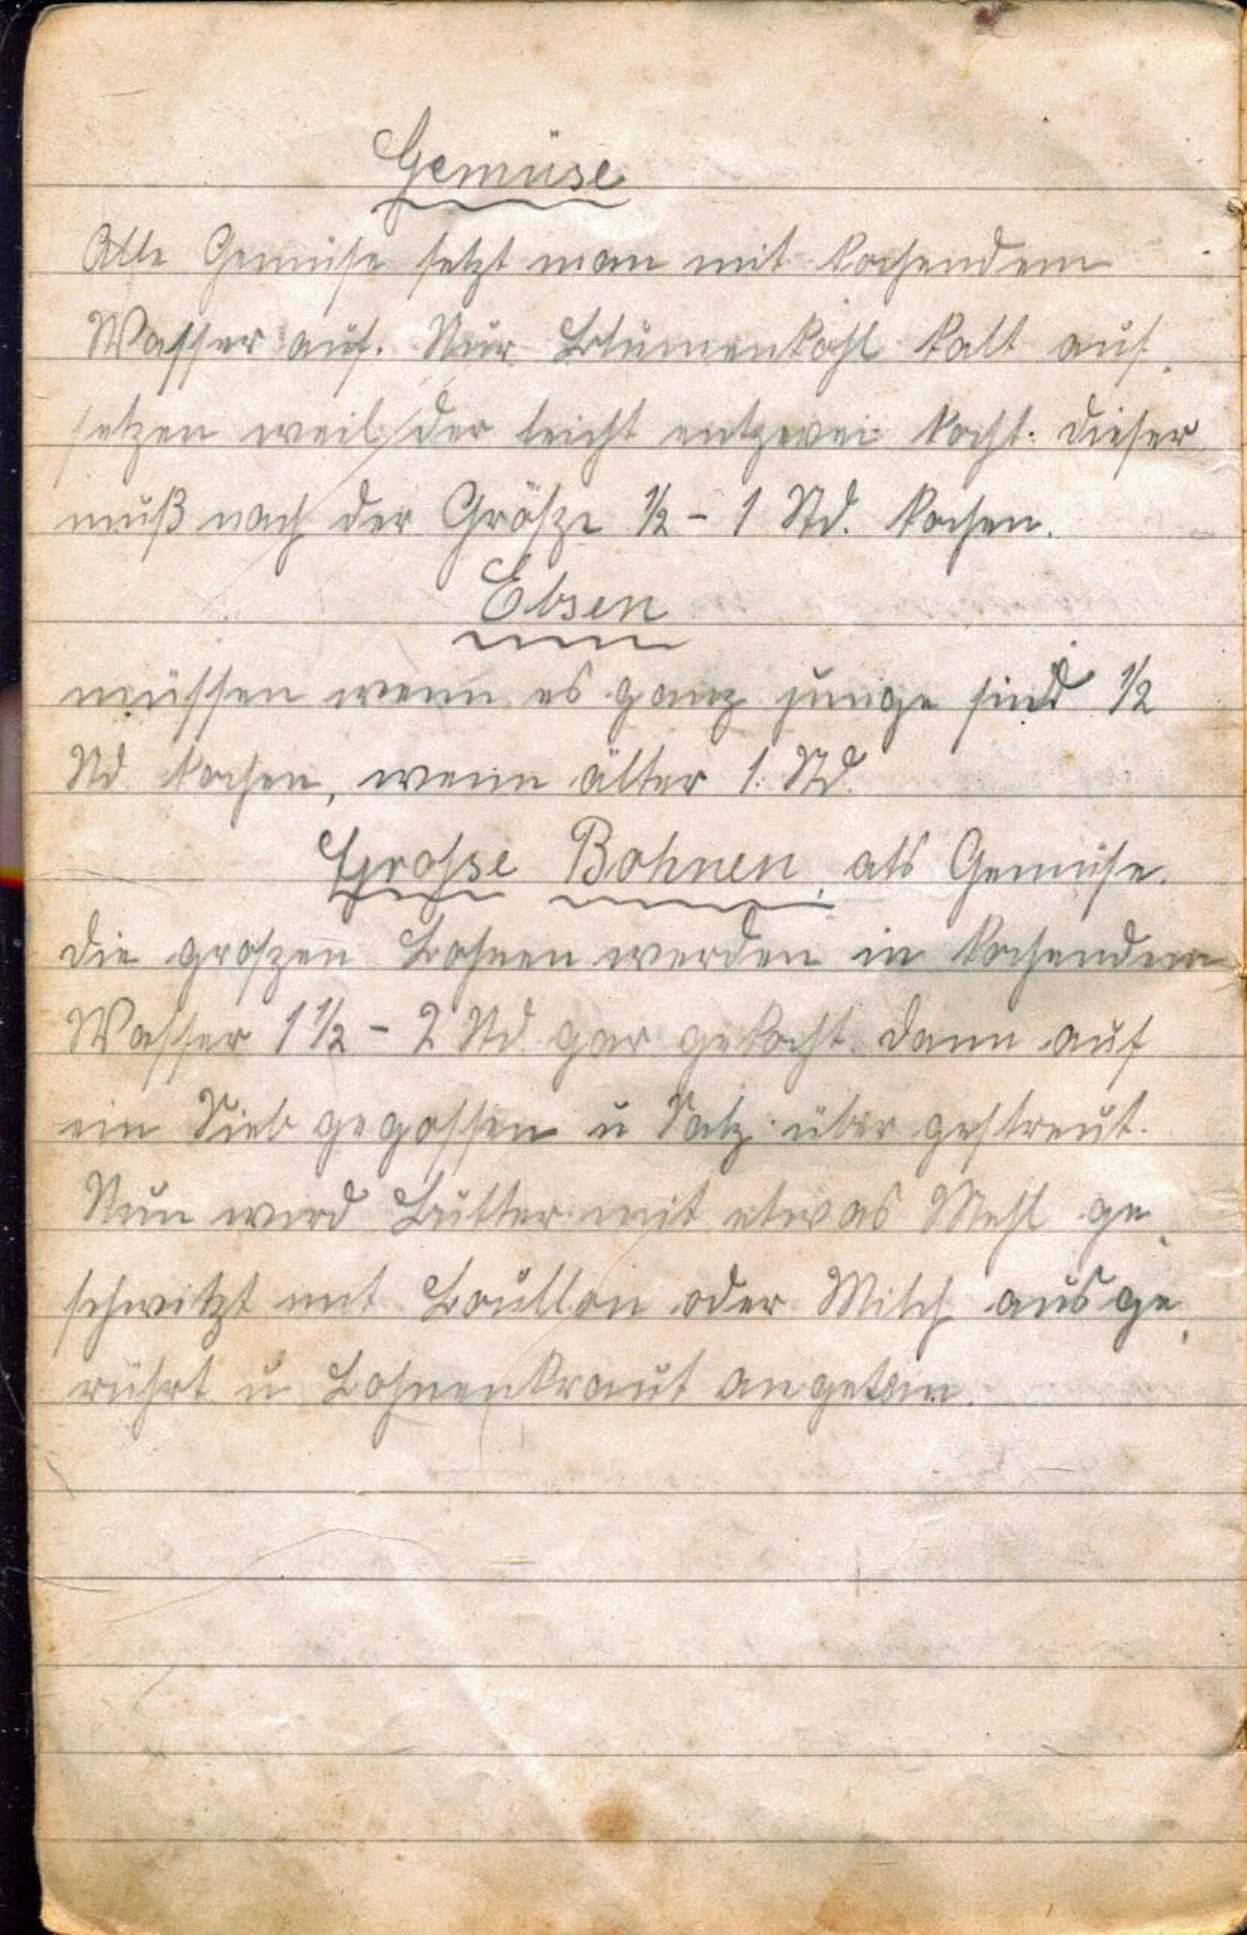 Gemüse
Alle Gemüse setzt man mit kochendem
Wasser auf. Nur Blumenkohl kalt auf-
setzen weil der leicht entzwei kocht. dieser
muß nach der Größe ½ - 1 Std. kochen.
Ebsen
müssen wenn es ganz junge sind ½
Std kochen, wenn älter 1. Std.
Grosse Bohnen, als Gemüse.
die großen Bohnen werden in kochendem
Wasser 1½ - 2 Std gar gekocht. dann auf
ein Sieb gegossen u Salz über gestreut.
Nun wird Butter mit etwas Mehl ge-
schwitzt mit Boullon oder Milch ausge-
rührt u Bohnenkraut angetan.